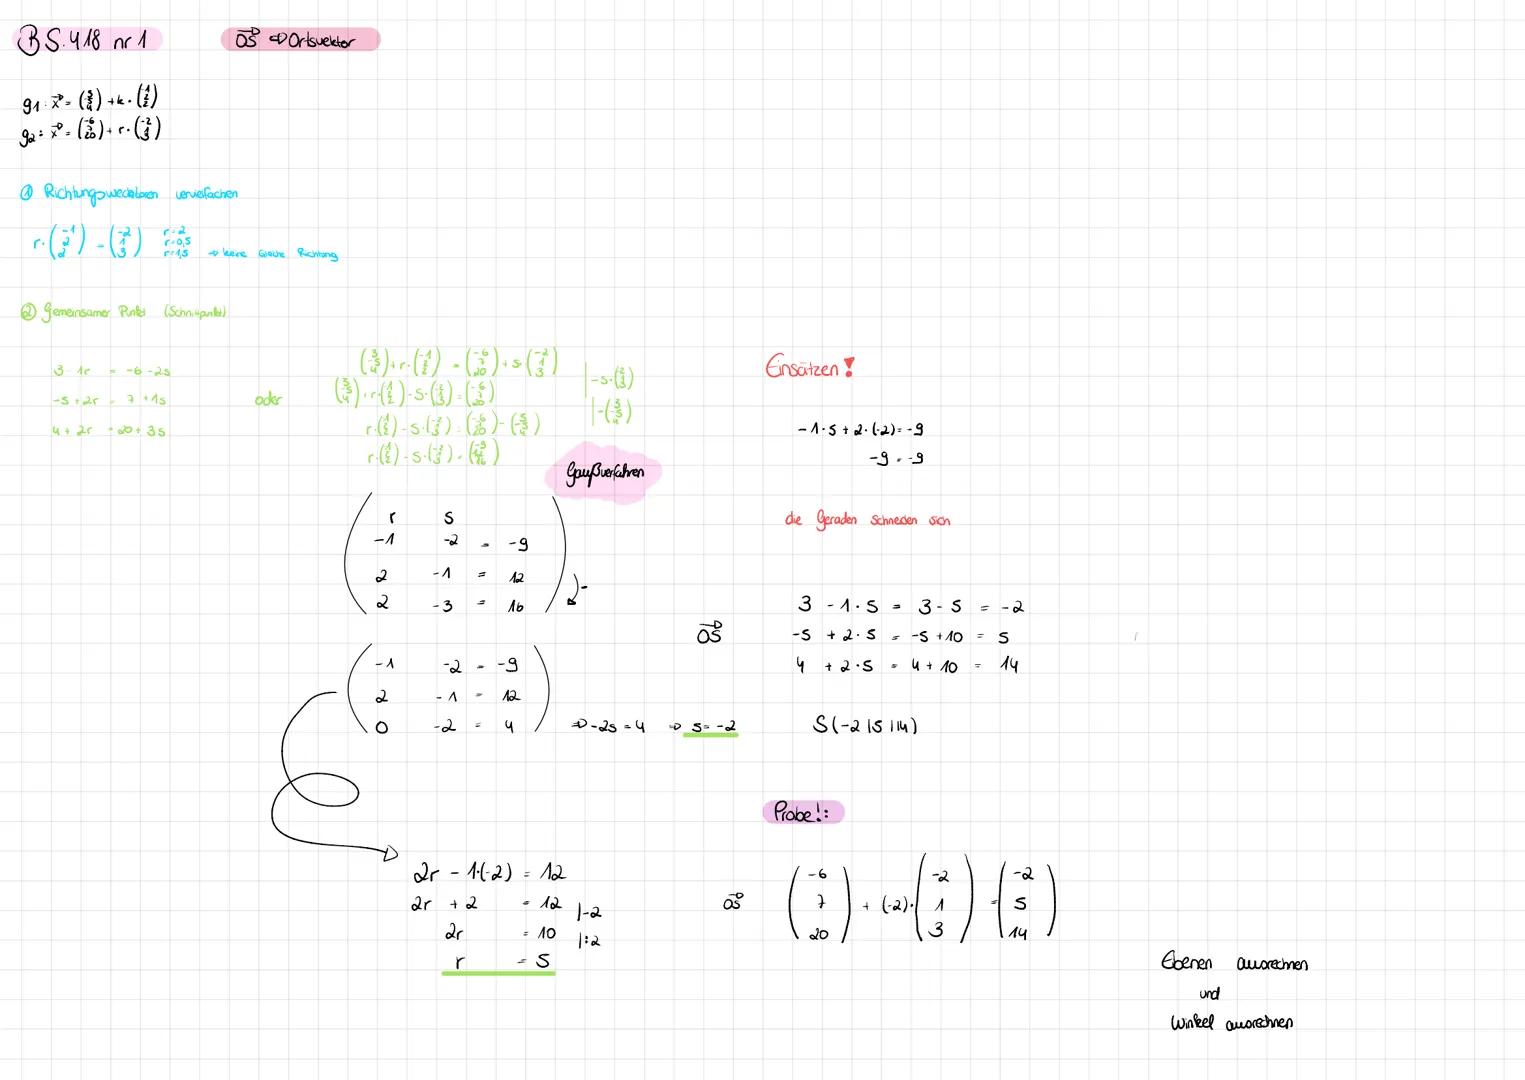 B S.418 nr 1
OS ⇒ Ortsvektor
g1: x = (3 -5 4) + k · (-1 2 2)
g2: x = (-6 7 20) + r · (-2 1 3)
① Richtungsvecktoren vervielfachen
r · (-1 2 2) = (-2 1 3) r=2 r=0,5 r=1,5 → keine Gleiche Richtung
② Gemeinsamer Punkt (Schnittpunkt)
3 - 1r = -6 - 2s
-5 + 2r = 7 + 1s
4 + 2r = 20 + 3s
oder
(3 -5 4) + r · (-1 2 2) = (-6 7 20) + s · (-2 1 3) | -s · (-2 1 3)
(3 -5 4) + r · (-1 2 2) - s · (-2 1 3) = (-6 7 20) | -(3 -5 4)
r · (-1 2 2) - s · (-2 1 3) = (-6 7 20) - (3 -5 4)
r · (-1 2 2) - s · (-2 1 3) = (-9 12 16)
Gaußverfahren
r s
-1 -2 = -9
2 -1 = 12
2 -3 = 16 -
-1 -2 = -9
2 -1 = 12
0 -2 = 4 ⇒ -2s = 4 ⇒ s = -2
2r - 1·(-2) = 12
2r + 2 = 12 |-2
2r = 10 |:2
r = 5
Einsätzen!
-1·5 + 2·(-2) = -9
-9 = -9
die Geraden schneiden sich
OS
3 - 1·5 = 3 - 5 = -2
-5 + 2·5 = -5 + 10 = 5
4 + 2·5 = 4 + 10 = 14
S(-2|5|14)
Probe!:
OS (-6 7 20) + (-2) · (-2 1 3) = (-2 5 14)
Ebenen ausrechnen
und
Winkel ausrechnen